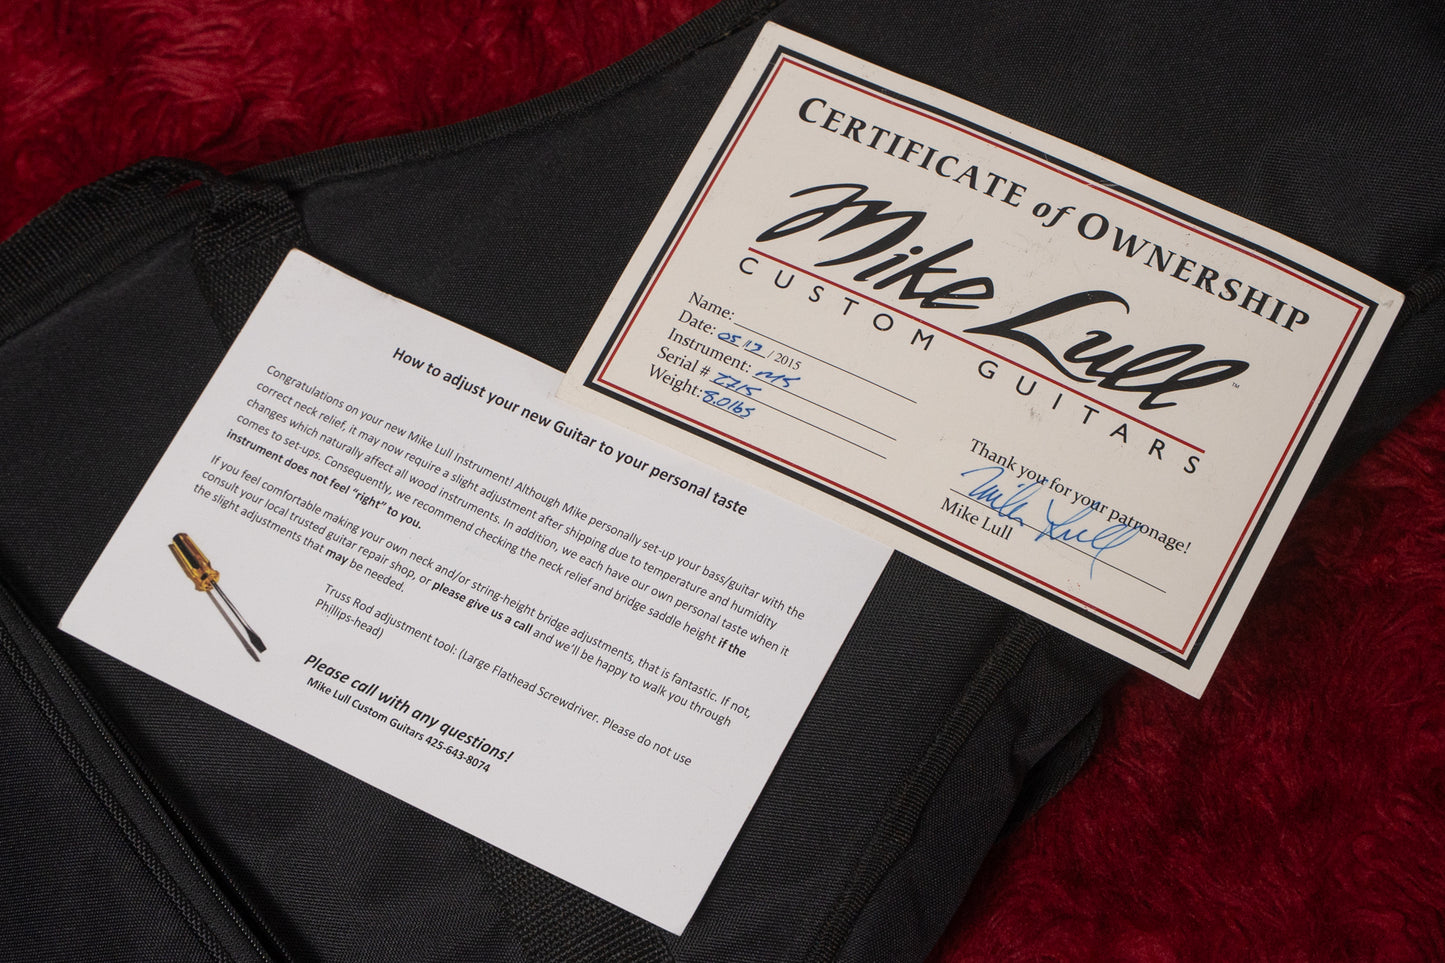 CERTIFICATE of OWNERSHIP
Mike Lull ™
CUSTOM GUITARS
Name:
Date: 05 / 12 / 2015
Instrument: M5
Serial # 2715
Weight: 8.0 lbs
Thank you for your patronage!
Mike Lull
Mike Lull
How to adjust your new Guitar to your personal taste
Congratulations on your new Mike Lull Instrument! Although Mike personally set-up your bass/guitar with the
correct neck relief, it may now require a slight adjustment after shipping due to temperature and humidity
changes which naturally affect all wood instruments. In addition, we each have our own personal taste when it
comes to set-ups. Consequently, we recommend checking the neck relief and bridge saddle height if the
instrument does not feel “right” to you.
If you feel comfortable making your own neck and/or string-height bridge adjustments, that is fantastic. If not,
consult your local trusted guitar repair shop, or please give us a call and we’ll be happy to walk you through
the slight adjustments that may be needed.
Truss Rod adjustment tool: (Large Flathead Screwdriver. Please do not use
Phillips-head)
Please call with any questions!
Mike Lull Custom Guitars 425-643-8074